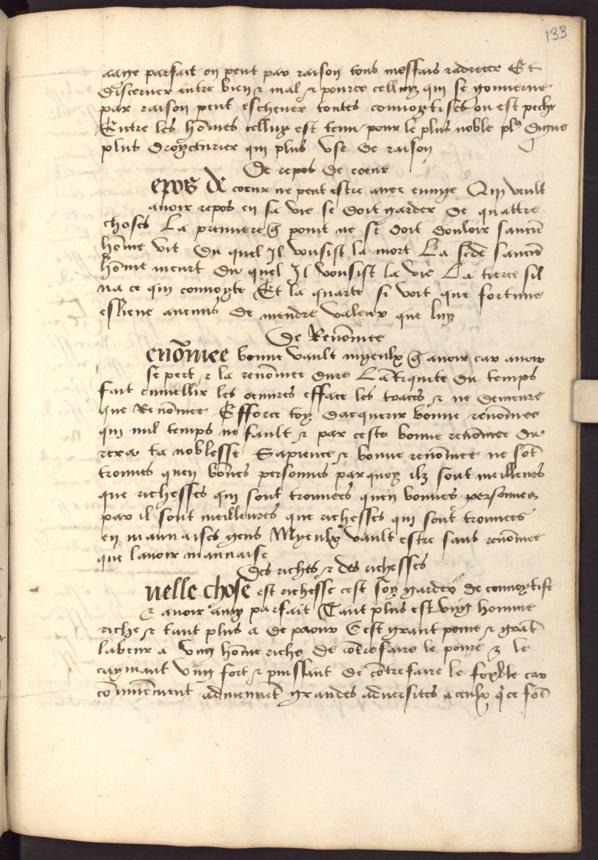 133
aage parfait on peut par raison tous meffais radrecer Et
discerner entre bien & mal & pource celluy qui se gouverne
par raison peut eschever toutes convoytises ou est peche
Entre les hōmes celluy est tenu pour le plus noble pls digne
plus droicturier qui plus use de raison
De repos de coeur
epos de coeur ne peut estre avec envye Qui veult
avoir repos en sa vie se doit garder de quattre
choses La premiere q̄ point ne se doit douloir saucun
hōme vit Du quel Il voulsist la mort La sede saucun
hōme meurt Du quel Il voulsist la vie La tierce sil
na ce qui convoyte Et la quarte si voit que fortune
eslieve aucuns de mendre valeur que luy
De Renōmee
enōmee bonne vault myeulx q̄ avoir car avoir
se pert & la renōmee dure Lantiquite du temps
fait envellir les oeuvres efface les traces & ne demeure
que Renōmee Efforce toy dacquerir bonne renōmee
qui nul temps ne fault & par ceste bonne renōmee du
rera ta noblesse Sapience & bonne renōmee ne sōt
trouves quen bōnes personnes par quoy ilz sont meilleurs
que richesses qui sont trouvees quen bonnes personnes
par il sont meilleures que richesses qui sont trouvees
en mauvaises gens Myeulx vault estre sans renōmee
que lavoir mauvaise
Des riches & des richesses
uelle chose est richesse cest soy garder de convoytise
& avoir amy parfait Tant plus est ung homme
riche & tant plus a de paour Cest grant peine & grāt
labeur a ung hōme riche de cōtrefaire le povre & le
caymant ung fort & puissant de cōtrefaire le foyble car
cōmunement adviennent grandes adversites a ceulx q̄ ce fōt